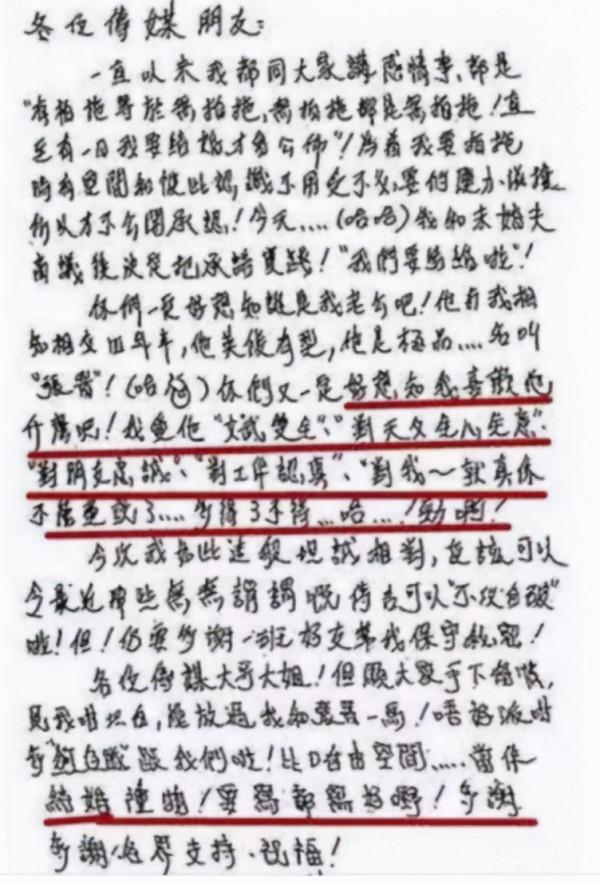 各位傳媒朋友：
一直以來我都同大家講感情事，都是
"有拍拖等於無拍拖，無拍拖都是無拍拖！直
至有一日我要結婚才會公佈"！為着我要拍拖
時有空間和彼此認識不用受不必要的壓力
所以才不公開承認！今天....(哈哈)我和未婚夫
商議後決定把承諾實踐！"我們要結婚啦"！
你們一定好想知誰是我老公吧！他有我相
知相交四年半，他英俊有型，他是極品....名叫
"張晋"！(哈哈)你們又一定好想知我喜歡他
什麼呢！我愛他"文武雙全"、"對天父全心全意"
"對朋友忠誠"、"對工作認真"、"對我～就真係
不能更或了....多得了不得...哈...！勁啊！
今次我如此這般坦誠相對，應該可以
令最近那些無無謂謂嘅傳言可以"不攻自破"
啦！但！仍要多謝一班好友幫我保守秘密！
各位傳媒大哥大姐！但願大家手下留情，
見我咁坦白，放過我和張晋一馬！唔好派咁
多"狗自隊"跟我們啦！比D自由空間.....當係
結婚禮物！要寫都寫好嘢！多謝
多謝！各界支持、祝福！